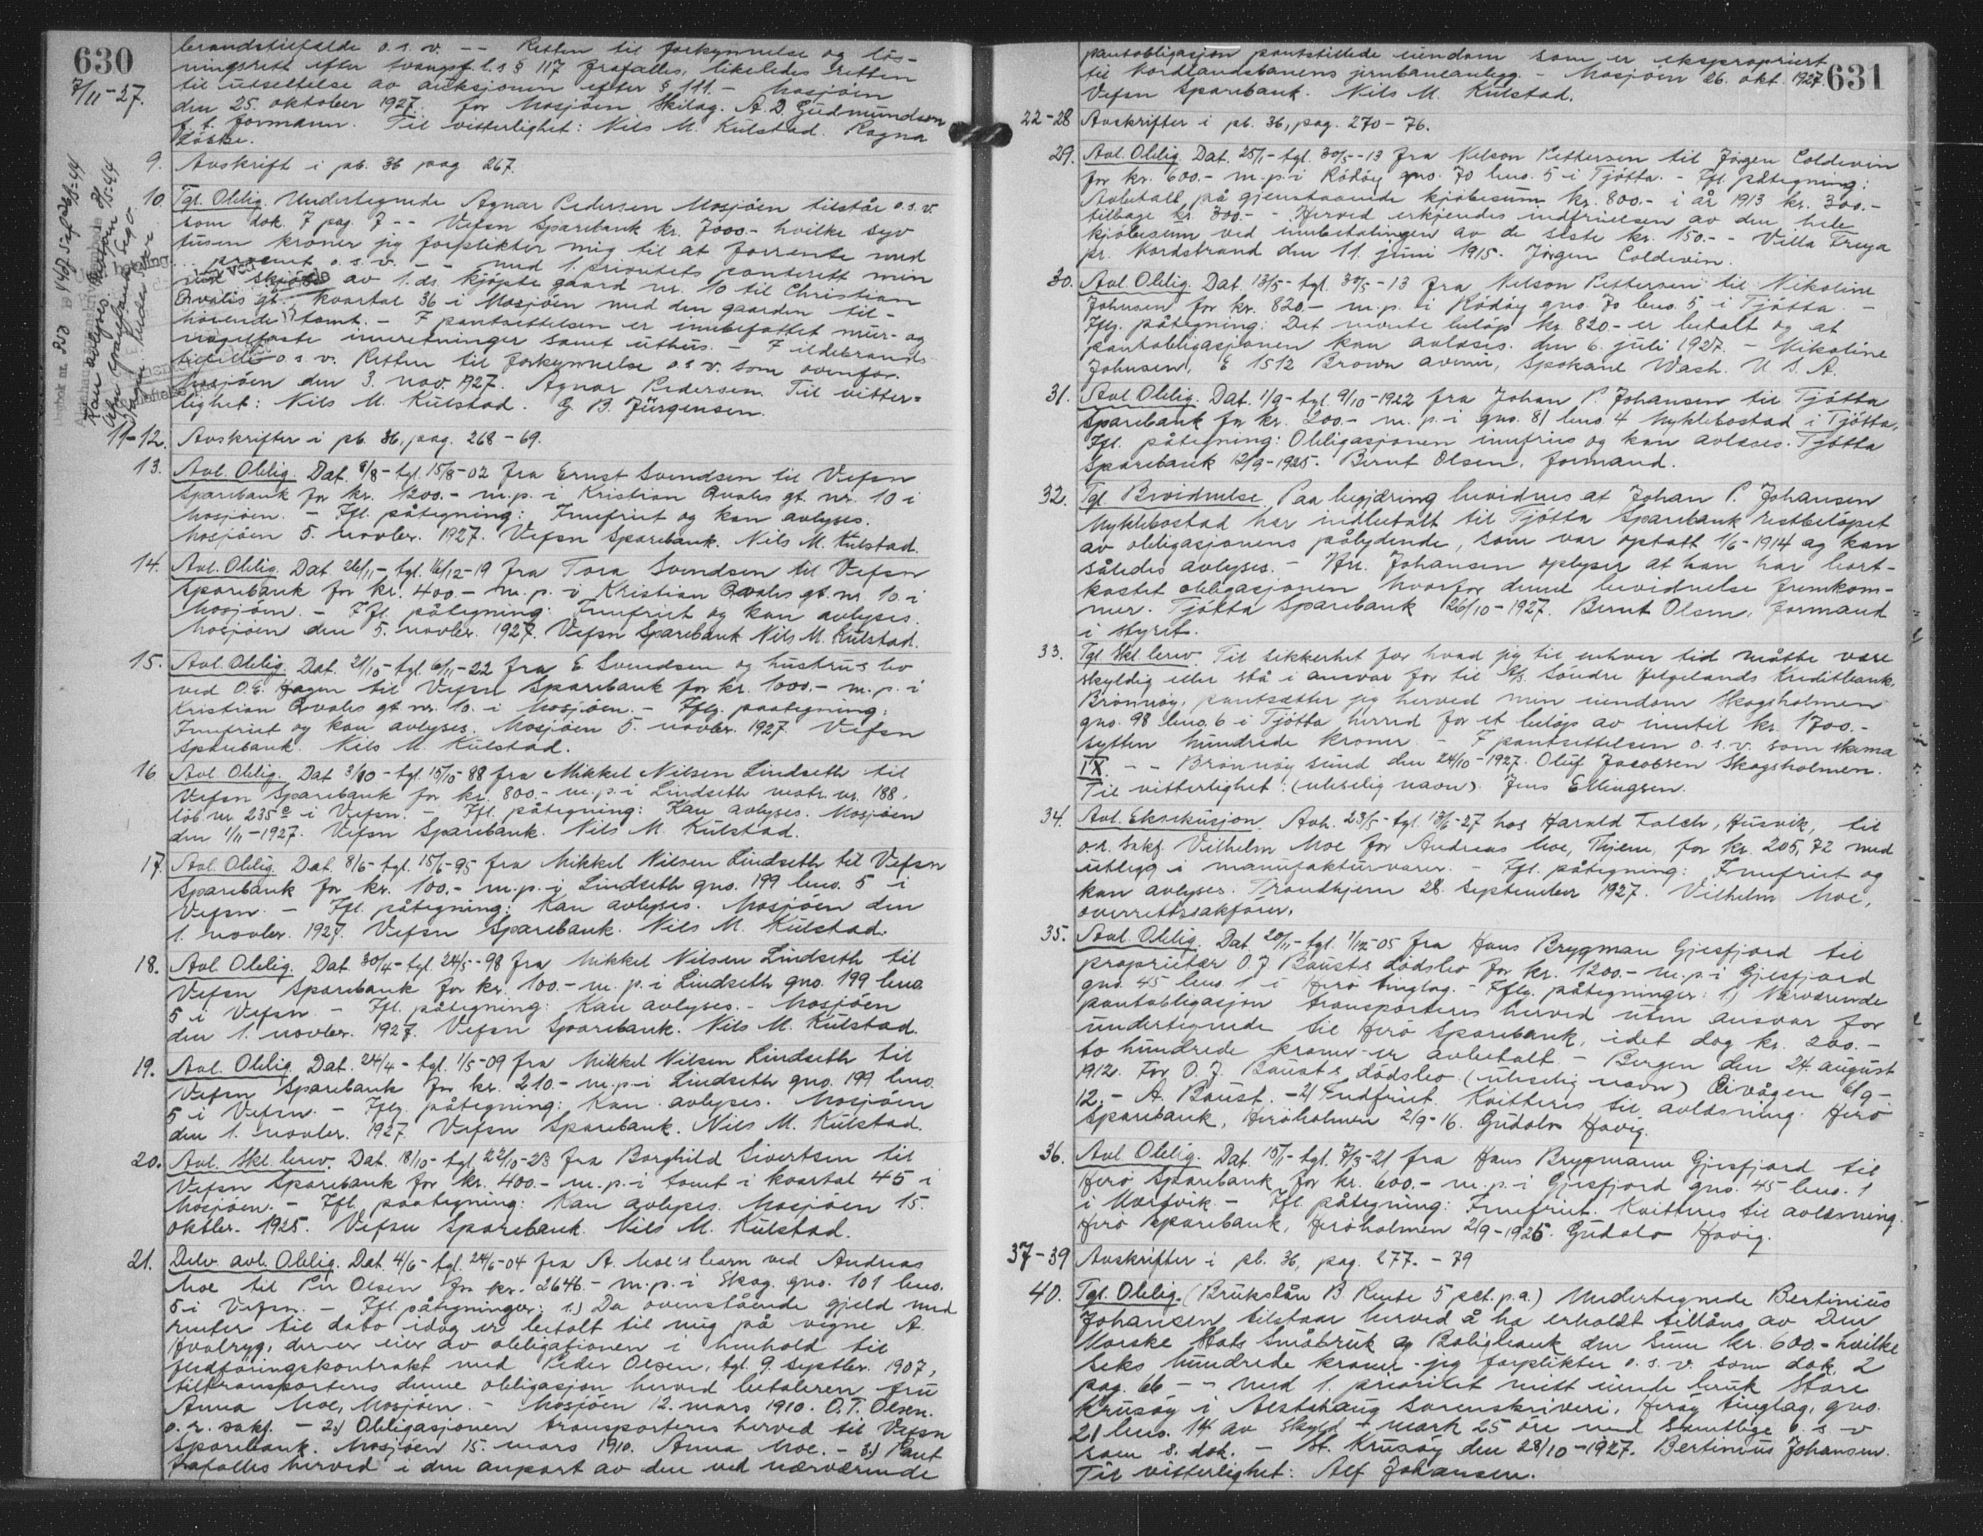 630
7/11-27.
brandstilfælde o.s.v. -- Retten til forkynnelse og løs-
ningsrett efter tvangsf.l.s § 117 frafalles, likeledes retten
til utsettelse av auksjonen efter § 111. - Mosjøen
den 25. oktober 1927. for Mosjøen Skilag. A. D. Gudmundsen
formann. Til vitterlighet: Nils M. Kulstad. Ragna
9. Avskrift i pb. 36 pag 267.
10 Tgl. Oblig. Undertegnede Agnar Pedersen Mosjøen tilstår o.s.v.
som dok. 7 pag. 7 -- Vefsn Sparebank kr. 7000.- hvilke syv
tusen kroner jeg forplikter mig til at forrente med
.. procent o.s.v. - - med 1. prioritets panterett min
ved skjøte av 1. ds. kjøpte gaard nr. 10 til Christian
Qvales gt. kvartal 36 i Mosjøen med den gaarden til-
hørende tomt. - I pantsettelsen er innbefattet mur- og
nagelfaste innretninger samt uthus. - I ildebrands-
tilfelle o.s.v. Retten til forkynnelse o.s.v. som ovenfor.
Mosjøen den 3. nov. 1927. Agnar Pedersen. Til vitter-
lighet: Nils M. Kulstad. G. B. Jürgensen.
11-12. Avskrifter i pb. 36, pag. 268-69.
13. Avl. Oblig. Dat. 8/8 - tgl. 15/8-02 fra Ernst Svendsen til Vefsn
Sparebank for kr. 1200.- m.p. i Kristian Qvales gt. nr. 10 i
Mosjøen. - Ifl. påtegning: Innfriet og kan avlyses.
Mosjøen 5. novbr. 1927. Vefsn Sparebank. Nils M. Kulstad.
14. Avl. Oblig. Dat 26/11 - tgl. 16/12-19 fra Tora Svendsen til Vefsn
Sparebank for kr. 400.- m.p. i Kristian Qvales gt. nr. 10. i
Mosjøen. - Ifl. påtegning: Innfriet og kan avlyses.
Mosjøen den 5. novbr. 1927. Vefsn Sparebank Nils M. Kulstad.
15. Avl. Oblig. Dat. 21/10 - tgl. 6/11-22 fra E. Svendsen og hustrus bo
ved O. E. Hagen til Vefsn Sparebank for kr. 1000.- m.p. i
Kristian Qvales gt. nr. 10. i Mosjøen. - Iflg. paategning:
Innfriet og kan avlyses. Mosjøen 5. novbr. 1927. Vefsn
Sparebank. Nils M. Kulstad.
16 Avl. Oblig. Dat 3/10 - tgl. 15/10-88 fra Mikkel Nilsen Lindseth til
Vefsn Sparebank for kr. 800.- m.p. i Lindseth matr. nr. 188,
løb. nr. 235c i Vefsn. - Ifl. påtegning: Kan avlyses. Mosjøen
den 1/11-1927. Vefsn Sparebank. Nils M. Kulstad.
17. Avl. Oblig. Dat. 8/6 - tgl. 15/6-95 fra Mikkel Nilsen Lindseth til Vefsn
Sparebank for kr. 100.- m.p. i Lindseth gno. 199 bno. 5 i
Vefsn. - Ifl. påtegning: Kan avlyses. Mosjøen den
1. novbr. 1927. Vefsn Sparebank. Nils M. Kulstad.
18. Avl Oblig. Dat. 30/4 - tgl. 24/5-98 fra Mikkel Nilsen Lindseth til
Vefsn Sparebank for kr. 100.- m.p. i Lindseth gno. 199 bno
5 i Vefsn. - Ifl. påtegning: Kan avlyses. - Mosjøen
den 1. novbr. 1927. Vefsn Sparebank. Nils M. Kulstad.
19. Avl. Oblig. Dat. 24/4 - tgl. 1/5-09 fra Mikkel Nilsen Lindseth til
Vefsn Sparebank for kr. 210.- m.p. i Lindseth gno. 199 bno.
5 i Vefsn. - Iflg. påtegning: Kan avlyses. Mosjøen
den 1. novbr. 1927. Vefsn Sparebank. Nils M. Kulstad.
20. Avl. Skl. brev. Dat. 18/10 - tgl. 22/10-23 fra Borghild Sivertsen til
Vefsn Sparebank for kr. 400.- m.p. i tomt i kvartal 45 i
Mosjøen. - Ifl. paategning: Kan avlyses. Mosjøen 15.
oktbr. 1925. Vefsn Sparebank. Nils M. Kulstad.
21. Delv. avl. Oblig. Dat. 4/6 - tgl. 24/6-04 fra A. Moe's barn ved Andreas
Moe til Per Olsen for kr. 2646.- m.p. i Skog. gno. 101 bno.
5 i Vefsn. - Ifl. påtegninger: 1.) Da ovenstående gjeld med
renter til dato idag er betalt til mig på vegne A.
Hvalryg, der er eier av obligationen i henhold til
fledføringskontrakt med Peder Olsen, tgl. 9. septbr. 1907,
tiltransporteres denne obligasjon herved betaleren fru
Anna Moe, Mosjøen. - Mosjøen 12. mars 1910. O. T. Olsen.
o. r. sakf. - 2.) Obligasjonen transporteres herved til Vefsn
Sparebank. Mosjøen 15. mars 1910. Anna Moe. - 3.) Pant
frafalles herved i den anpart av den ved nærværende
631
pantobligasjon pantstillede eiendom som er ekspropriert
til Nordlandsbanens jernbaneanlegg. - Mosjøen 26. okt. 1927.
Vefsn Sparebank. Nils M. Kulstad.
22-28 Avskrifter i pb. 36, pag. 270-76.
29. Avl. Oblig. Dat. 25/1 - tgl. 30/5-13 fra Nelson Pettersen til Jørgen Coldevin
for kr. 600.- m.p. i Rødøy gno. 70 bno. 5 i Tjøtta. - Ifl. påtegning:
Avbetalt på gjenstaaende kjøbesum kr. 800.- i år 1913 kr. 300.-
tilbage kr. 300.- - Herved erkjendes indfrielsen av den hele
kjøbesum ved innbetalingen av de siste kr. 150.- - Villa Freya
pr. Nordstrand den 11. juni 1915. Jørgen Coldevin.
30. Avl. Oblig. Dat. 13/5 - tgl. 30/5-13 fra Nelson Pettersen til Nikoline
Johnsen for kr. 820.- m.p. i Rødøy gno. 70 bno. 5 i Tjøtta. -
Iflg. påtegning: Det nevnte beløp kr. 820.- er betalt og at
pantobligasjonen kan avløses. den 6. juli 1927. - Nikoline
Johnsen, E 1512 Brown avenir, Spokane Wash. U. S. A.
31. Avl Oblig. Dat. 1/9 - tgl. 9/10-1922 fra Johan P. Johansen til Tjøtta
Sparebank for kr. 200.- m.p. i gno. 81 bno. 4 Nyklebostad i Tjøtta.
Ifl. påtegning: Obligasjonen innfries og kan avløses. Tjøtta
Sparebank 12/9-1925. Bernt Olsen, formand.
32. Tgl. Bevidnelse. Paa begjæring bevidnes at Johan P. Johansen
Nyklebostad har indbetalt til Tjøtta Sparebank restbeløpet
av obligasjonens pålydende, som var optatt 1/6-1914 og kan
således avlyses. - Hr. Johansen oplyser at han har bort-
kastet obligasjonen hvorfor denne bevidnelse fremkom-
mer. Tjøtta Sparebank 26/10-1927. Bernt Olsen, formand
i styret.
33. Tgl Skl. brev. Til sikkerhet for hvad jeg til enhver tid måtte være
skyldig eller stå i ansvar for til A/S. Søndre Helgelands Kreditbank,
Brønnøy, pantsætter jeg herved min eiendom Skogsholmen
gno. 98 bno. 6 i Tjøtta herred for et beløp av inntil kr. 1700.-
sytten hundrede kroner. - I pantsettelsen o.s.v. som skema
IX. - - Brønnøysund den 24/10-1927. Oluf Jacobsen Skogsholmen.
Til vitterlighet: (uleselig navn). Jens Ellingsen.
34. Avl. Eksekusjon. Avh. 23/5 - tgl. 13/6-27 hos Harald Falch, Husvik, til
o.r. sakf. Vilhelm Moe for Andreas Moe, Thjem, for kr. 205,72 med
utlegg i manufakturvarer. - Ifl. påtegning: Innfriet og
kan avlyses. Trondhjem 28. september 1927. Vilhelm Moe,
overrettssakfører.
35. Avl. Oblig. Dat. 20/11 - tgl. 1/12-05 fra Hans Brygman Gjesfjord til
proprietær O. J. Bausts dødsbo for kr. 1200.- m.p. i Gjesfjord
gno. 45 bno. 1 i Herø tinglag. - Iflg. påtegninger: 1.) Nærværende
pantobligasjon transporteres herved uten ansvar for
undertegnede til Herø Sparebank, idet dog kr. 200.-
to hundrede kroner er avbetalt. - Bergen den 24. august
1912. For O. J. Bausts dødsbo (uleselig navn) Eivågen 6/9-
12.- A. Baust. - 2) Indfriet. Kvitteres til avlæsning. Herø
Sparebank, Herøholmen 2/9-16. Gudolv Hovig.
36. Avl. Oblig. Dat. 15/1 - tgl. 7/3-21 fra Hans Brygmann Gjesfjord til
Herø Sparebank for kr. 600.- m.p. i Gjesfjord gno. 45 bno. 1
i Nordvik - Ifl. påtegning: Innfriet. Kvitteres til avlæsning.
Herø Sparebank, Herøholmen 2/9-1926. Gudolv Hovig.
37-39 Avskrifter i pb. 36, pag. 277.-79
40. Tgl. Oblig. (Brukslån B. Rente 5 pct. p.a.) Undertegnede Bertinius
Johansen tilstaar herved å ha erholdt tillåns av Den
Norske Stats Småbruk og Boligbank den sum kr. 600.- hvilke
seks hundrede kroner jeg forplikter o.s.v. som dok. 2
pag. 66 - - med 1. prioritet mitt eiende bruk Store
Krusøy i Alstahaug sorenskriveri, Herøy tinglag, gno.
21 bno. 14 av skyld - mark 25 øre med samtlige o.s.v
som s. dok. - St. Krusøy den 28/10-1927. Bertinius Johansen.
Til vitterlighet: Alf Johansen.